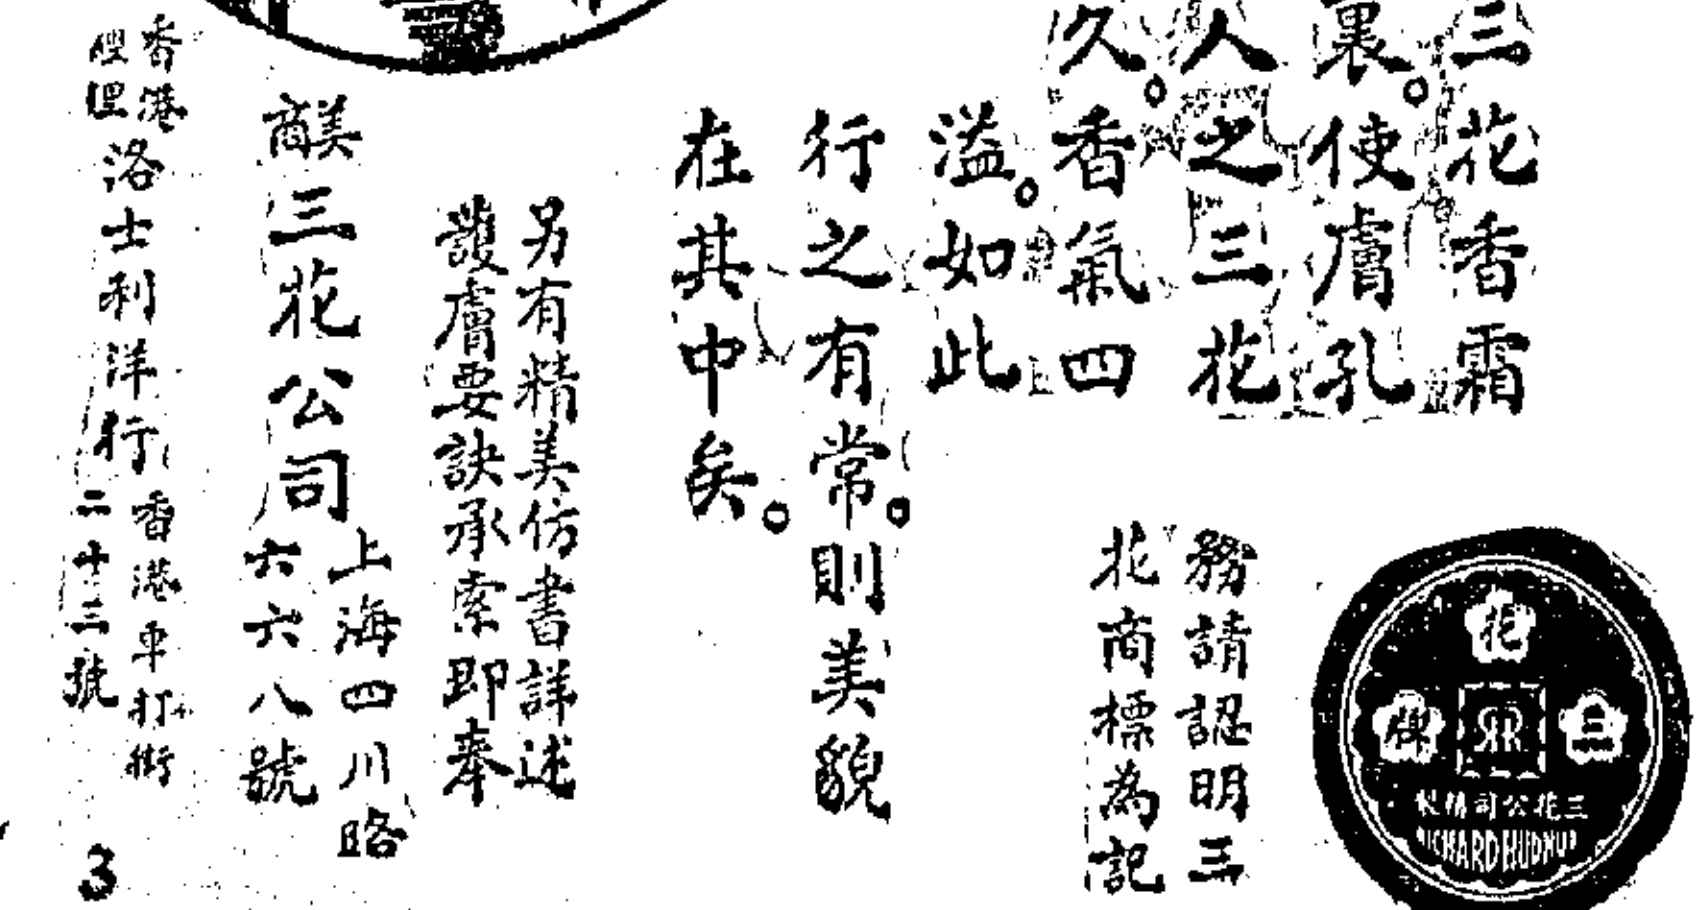 三花香霜
裏。使膚孔
人之三花
久。香氣四
溢。如此
行之有常。則美貌
在其中矣。
務請認明三
花商標為記
花
三
牌
三花公司精製
RICHARD HUDNUT
另有精美仿書詳述
護膚要訣承索即奉
美商
三花公司
上海四川路
六六八號
香港
洛士利洋行
香港車打街
二十三號
3